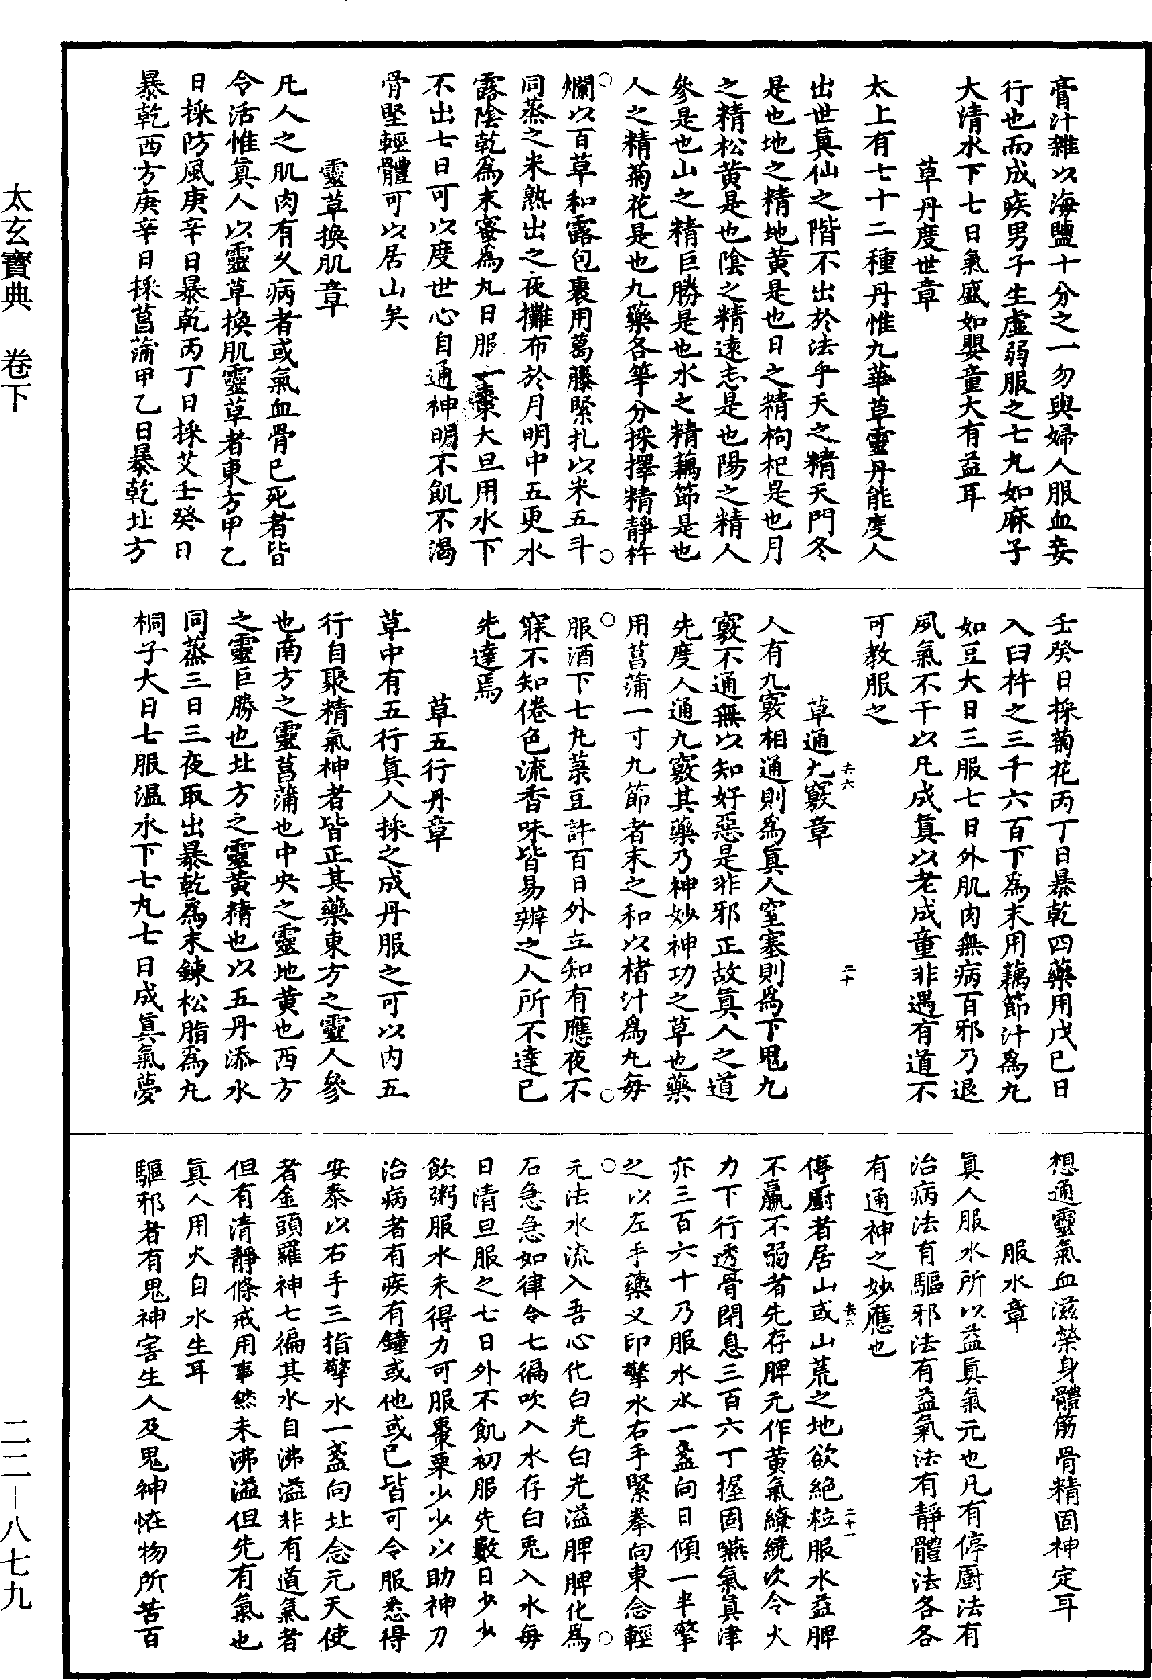 膏汁雜以海鹽十分之一勿與婦人服血妄
行也而成疾男子生虛弱服之七丸如麻子
大清水下七日氣盛如嬰童大有益耳
草丹度世章
太上有七十二種丹惟九華草靈丹能度人
出世眞仙之階不出於法乎天之精天門冬
是也地之精地黃是也日之精枸杞是也月
之精松黃是也陰之精遠志是也陽之精人
參是也山之精巨勝是也水之精藕節是也
人之精菊花是也九藥各等分採擇精靜杵
爛以百草和露包裹用葛藤緊扎以米五斗
同蒸之米熟出之夜攤布於月明中五更水
露陰乾爲末蜜爲丸日服一棗大旦用水下
不出七日可以度世心自通神明不飢不渴
骨堅輕體可以居山矣
靈草換肌章
凡人之肌肉有久病者或氣血骨已死者皆
令活惟眞人以靈草換肌靈草者東方甲乙
日採防風庚辛日暴乾丙丁日採艾壬癸日
暴乾西方庚辛日採菖蒲甲乙日暴乾北方
壬癸日採菊花丙丁日暴乾四藥用戊己日
入臼杵之三千六百下爲末用藕節汁爲丸
如豆大日三服七日外肌肉無病百邪乃退
夙氣不干以凡成眞以老成童非遇有道不
可教服之
草通九竅章
去六
二十
人有九竅相通則爲眞人窒塞則爲下鬼九
竅不通無以知好惡是非邪正故眞人之道
先度人通九竅其藥乃神妙神功之草也藥
用菖蒲一寸九節者末之和以楮汁爲丸每
服酒下七丸菉豆許百日外立知有應夜不
寐不知倦色流香味皆易辨之人所不達已
先達焉
草五行丹章
草中有五行眞人採之成丹服之可以內五
行自聚精氣神者皆正其藥東方之靈人參
也南方之靈菖蒲也中央之靈地黃也西方
之靈巨勝也北方之靈黃精也以五丹添水
同蒸三日三夜取出暴乾爲末鍊松脂爲丸
桐子大日七服溫水下七丸七日成眞氣夢
想通靈氣血滋榮身體筋骨精固神定耳
服水章
眞人服水所以益眞氣元也凡有停廚法有
治病法有驅邪法有益氣法有靜體法各各
有通神之妙應也
去六
二十一
停廚者居山或山荒之地欲絕粒服水益脾
不羸不弱者先存脾元作黃氣繚繞次令火
力下行透骨閉息三百六丁握固嚥氣眞津
亦三百六十乃服水水一盞向日傾一半擎
之以左手藥叉印擎水右手緊拳向東念輕
元法水流入吾心化白光白光溢脾脾化爲
石急急如律令七徧吹入水存白兎入水每
日清旦服之七日外不飢初服先數日少少
飲粥服水未得力可服棗栗少少以助神刀
治病者有疾有鐘或他或已皆可令服悉得
安泰以右手三指擎水一盞向北念元天使
者金頭羅神七徧其水自沸溢非有道氣者
但有清靜條戒用事然未沸溢但先有氣也
眞人用火自水生耳
驅邪者有鬼神害生人及鬼神怪物所苦百
太玄寶典　卷下
二二－八七九